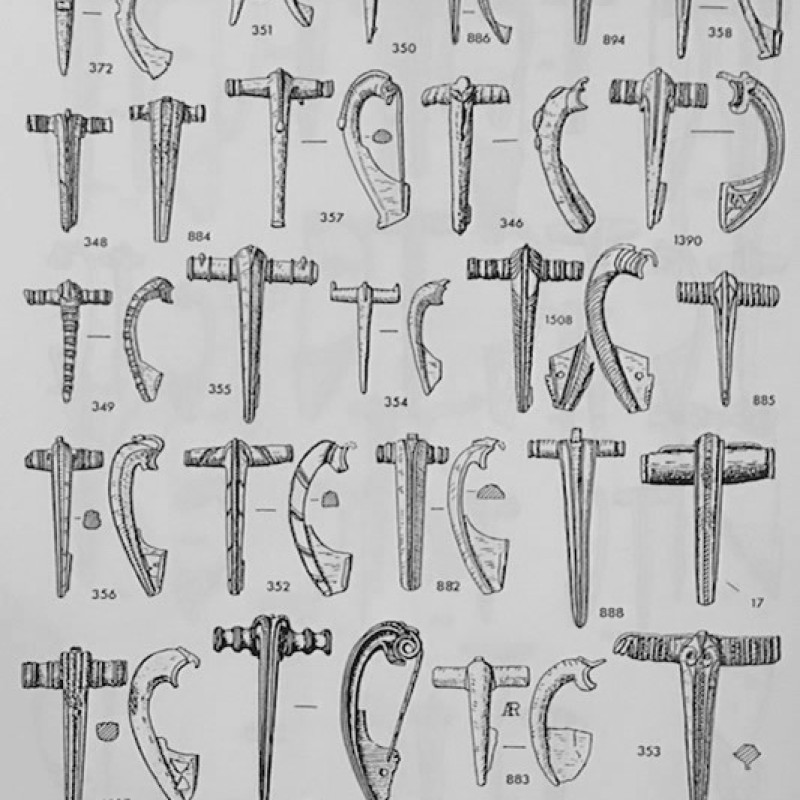 372
351
350
886
894
358
348
884
357
346
1390
349
355
354
1508
885
356
352
882
888
17
ÆR
883
353